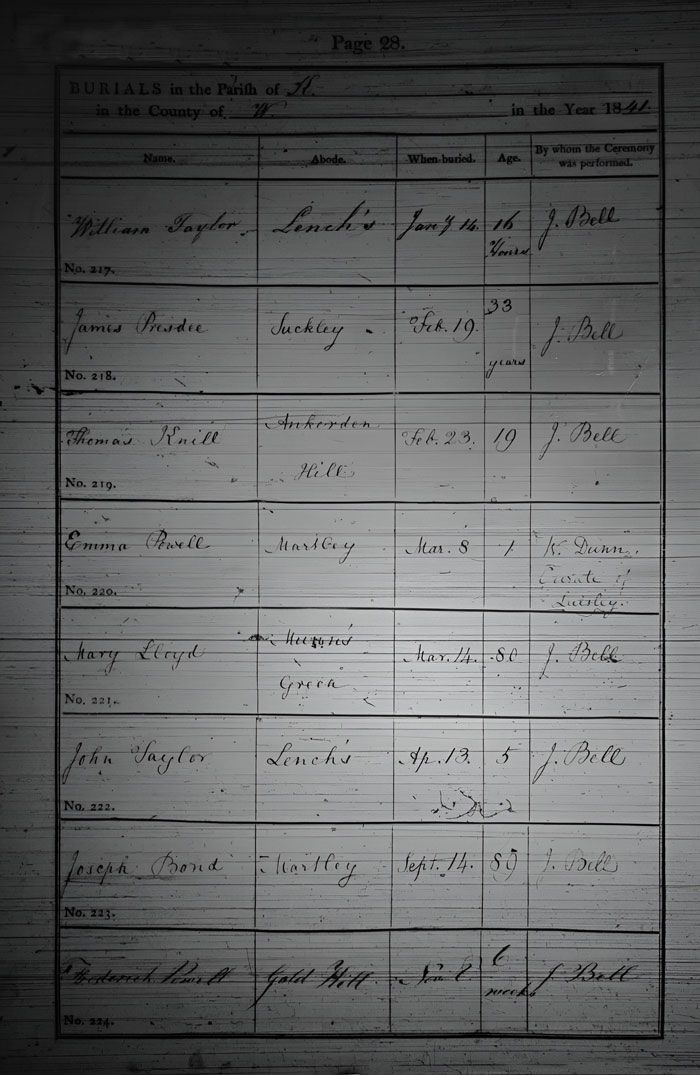 Page 28.
BURIALS in the Parish of K.
in the County of W. in the Year 1841.
Name. Abode. When buried. Age. By whom the Ceremony was performed.
William Taylor. Lench's Jany 14. 16 Hours J. Bell
No. 217.
James Presdee Suckley Feb. 19. 33 years J. Bell
No. 218.
Thomas Knill Ankerden Hill Feb. 23. 19 J. Bell
No. 219.
Emma Powell Martley Mar. 8 1 W. Dunn. Curate of
No. 220.
Mary Lloyd Green Mar. 14. 80 J. Bell
No. 221.
John Taylor Lench's Ap. 13. 5 J. Bell
No. 222.
Joseph Bond Martley Sept. 14. 89 J. Bell
No. 223.
Powell Hill Nov. 6 weeks J Bell
No. 224.